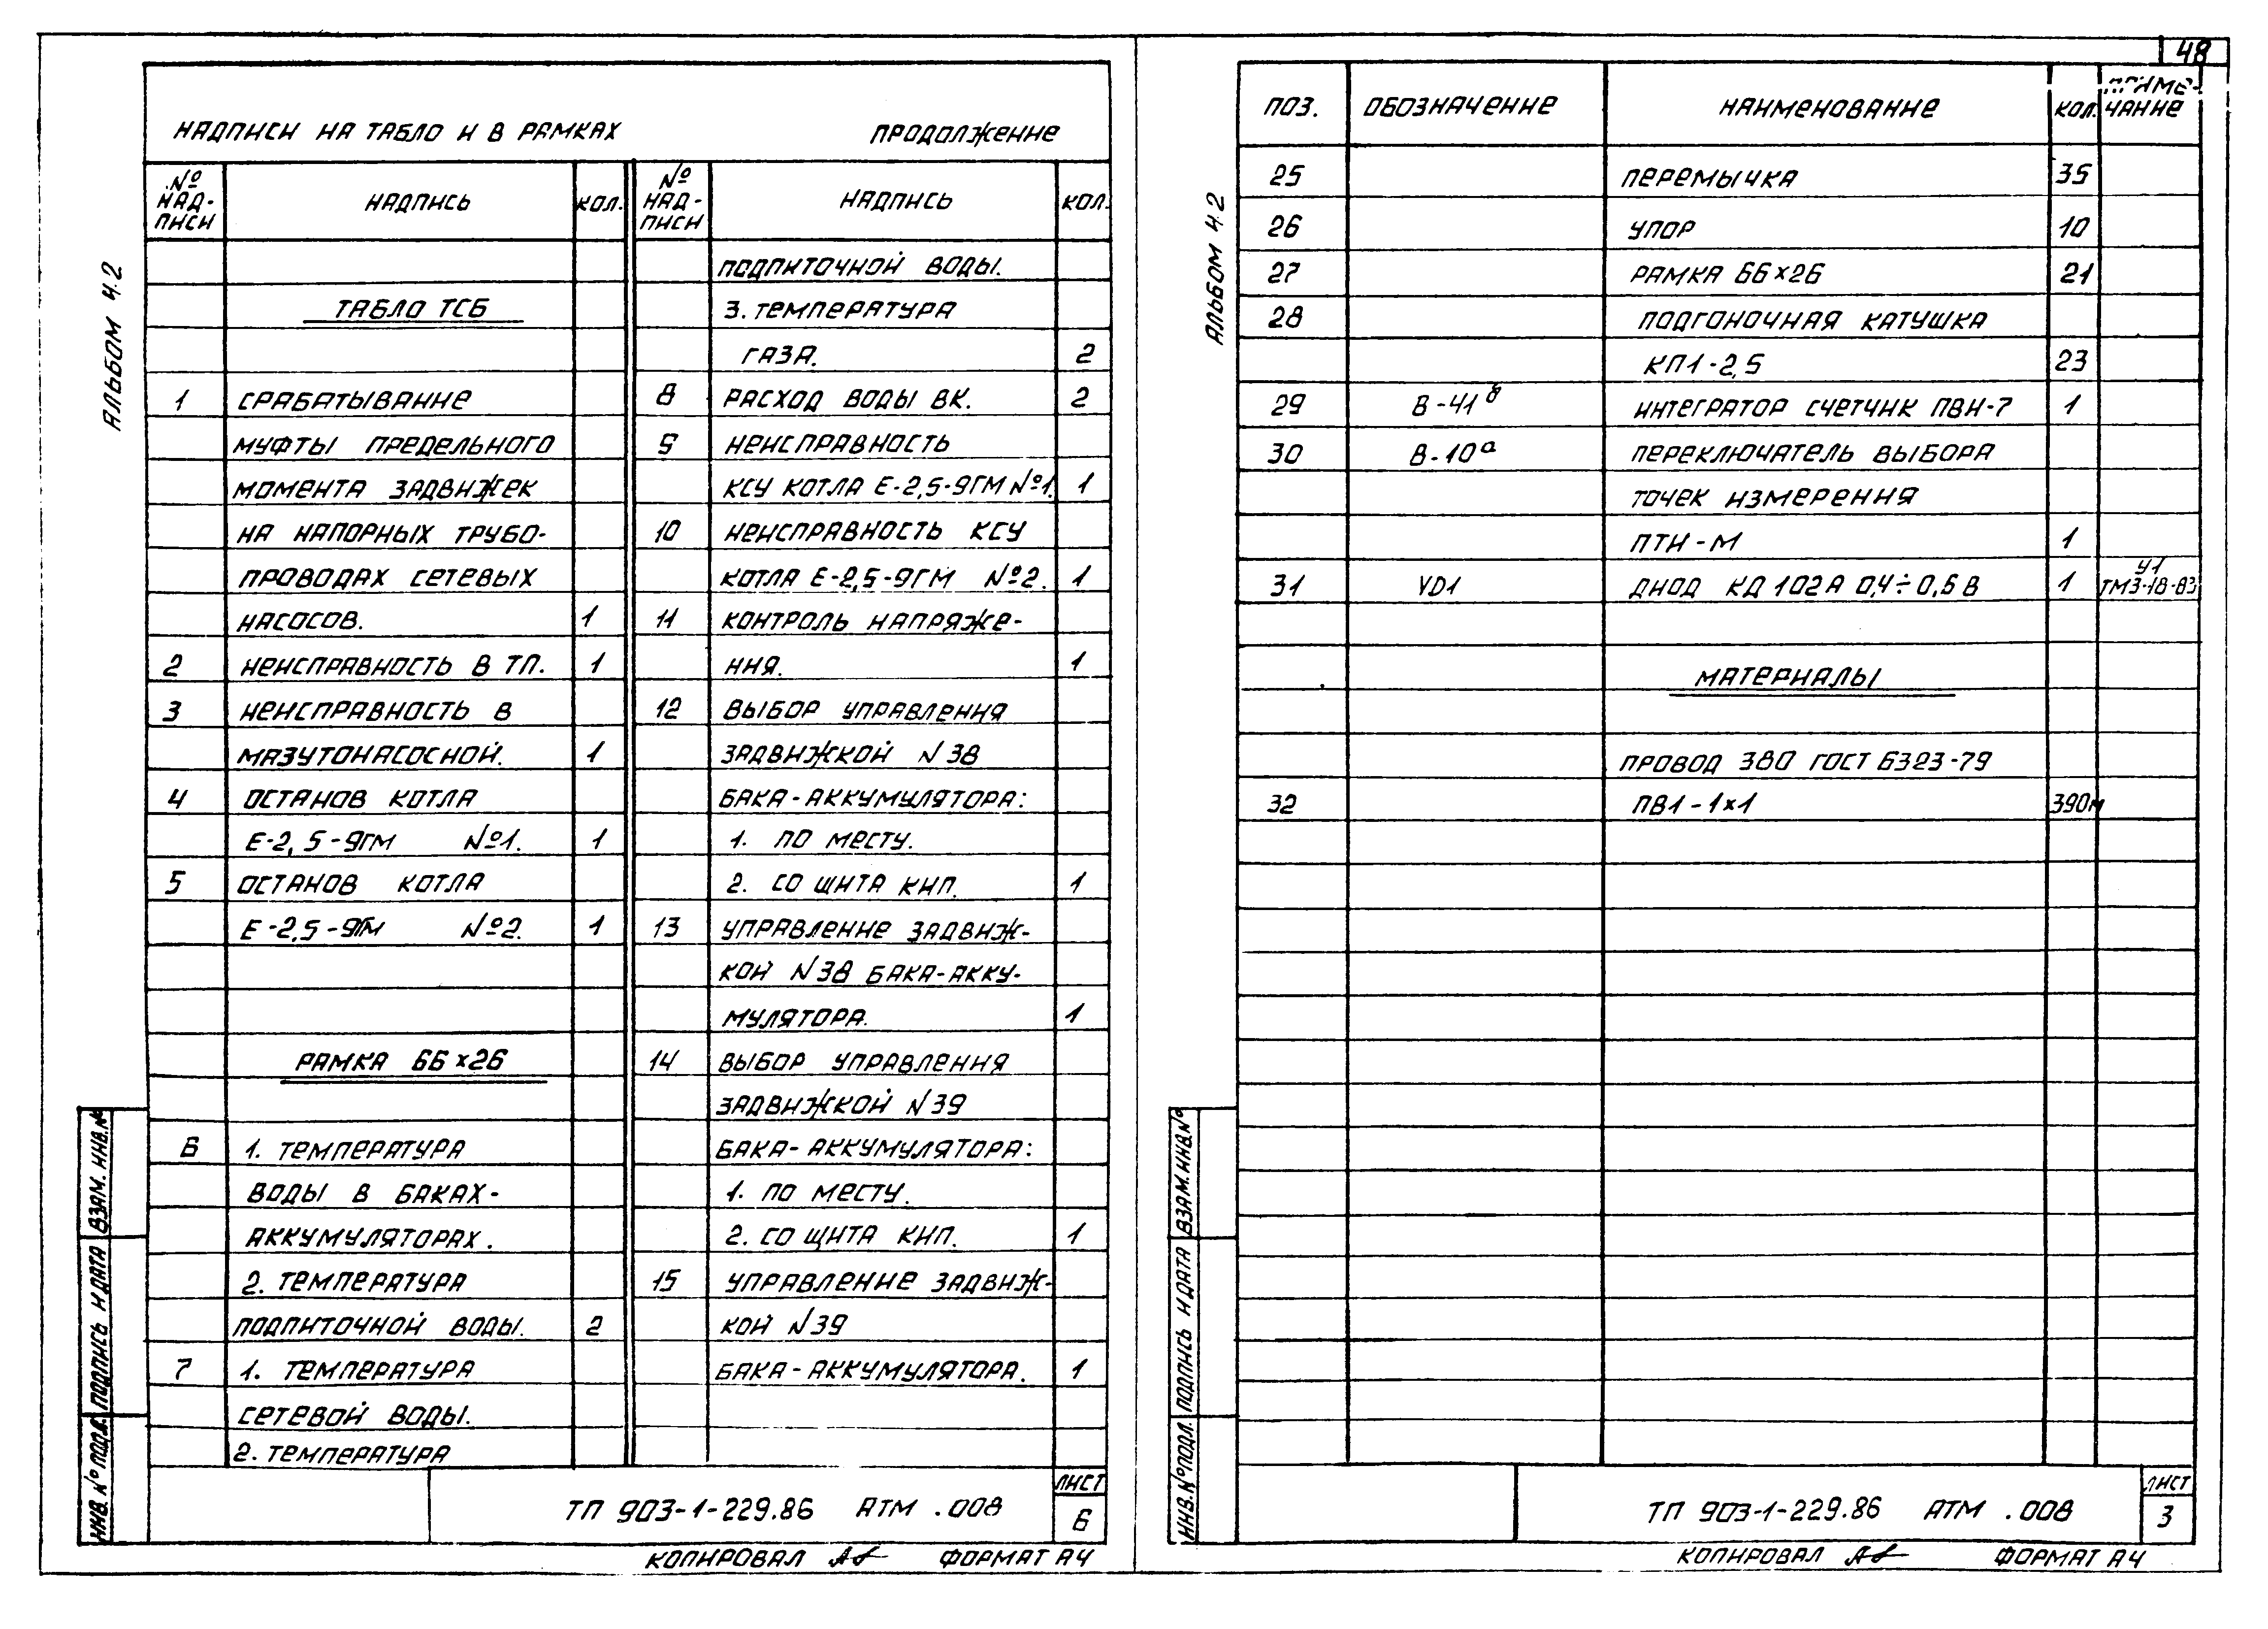 48
АЛЬБОМ 4.2
НАДПИСИ НА ТАБЛО И В РАМКАХ ПРОДОЛЖЕНИЕ
№ НАД-ПИСИ НАДПИСЬ КОЛ.
ТАБЛО ТСБ
1 СРАБАТЫВАНИЕ
МУФТЫ ПРЕДЕЛЬНОГО
МОМЕНТА ЗАДВИЖЕК
НА НАПОРНЫХ ТРУБО-
ПРОВОДАХ СЕТЕВЫХ
НАСОСОВ. 1
2 НЕИСПРАВНОСТЬ В ТП. 1
3 НЕИСПРАВНОСТЬ В
МАЗУТОНАСОСНОЙ. 1
4 ОСТАНОВ КОТЛА
Е-2,5-9ГМ №1. 1
5 ОСТАНОВ КОТЛА
Е-2,5-9ГМ №2. 1
РАМКА 66×26
6 1. ТЕМПЕРАТУРА
ВОДЫ В БАКАХ-
АККУМУЛЯТОРАХ.
2. ТЕМПЕРАТУРА
ПОДПИТОЧНОЙ ВОДЫ. 2
7 1. ТЕМПЕРАТУРА
СЕТЕВОЙ ВОДЫ.
2. ТЕМПЕРАТУРА
№ НАД-ПИСИ НАДПИСЬ КОЛ.
ПОДПИТОЧНОЙ ВОДЫ.
3. ТЕМПЕРАТУРА
ГАЗА. 2
8 РАСХОД ВОДЫ ВК. 2
9 НЕИСПРАВНОСТЬ
КСУ КОТЛА Е-2,5-9ГМ №1. 1
10 НЕИСПРАВНОСТЬ КСУ
КОТЛА Е-2,5-9ГМ №2. 1
11 КОНТРОЛЬ НАПРЯЖЕ-
НИЯ. 1
12 ВЫБОР УПРАВЛЕНИЯ
ЗАДВИЖКОЙ N38
БАКА-АККУМУЛЯТОРА:
1. ПО МЕСТУ.
2. СО ЩИТА КИП. 1
13 УПРАВЛЕНИЕ ЗАДВИЖ-
КОЙ N38 БАКА-АККУ-
МУЛЯТОРА. 1
14 ВЫБОР УПРАВЛЕНИЯ
ЗАДВИЖКОЙ N39
БАКА-АККУМУЛЯТОРА:
1. ПО МЕСТУ.
2. СО ЩИТА КИП. 1
15 УПРАВЛЕНИЕ ЗАДВИЖ-
КОЙ N39
БАКА-АККУМУЛЯТОРА. 1
ИНВ. №ПОДЛ. ПОДПИСЬ И ДАТА ВЗАМ. ИНВ.№
ТП 903-1-229.86 АТМ .008
ЛИСТ
6
КОПИРОВАЛ ФОРМАТ А4
АЛЬБОМ 4.2
ПОЗ. ОБОЗНАЧЕНИЕ НАИМЕНОВАНИЕ КОЛ. ПРИМЕ-ЧАНИЕ
25 ПЕРЕМЫЧКА 35
26 УПОР 10
27 РАМКА 66×26 21
28 ПОДГОНОЧНАЯ КАТУШКА
КП1-2,5 23
29 В-41б ИНТЕГРАТОР СЧЕТЧИК ПВИ-7 1
30 В-10а ПЕРЕКЛЮЧАТЕЛЬ ВЫБОРА
ТОЧЕК ИЗМЕРЕНИЯ
ПТИ-М 1
31 VD1 ДИОД КД 102А 0,4÷0,6В 1 У1 ТМ3-18-83
МАТЕРИАЛЫ
ПРОВОД 380 ГОСТ 6323-79
32 ПВ1-1×1 390м
ИНВ.№ПОДЛ. ПОДПИСЬ И ДАТА ВЗАМ.ИНВ.№
ТП 903-1-229.86 АТМ .008
ЛИСТ
3
КОПИРОВАЛ ФОРМАТ А4